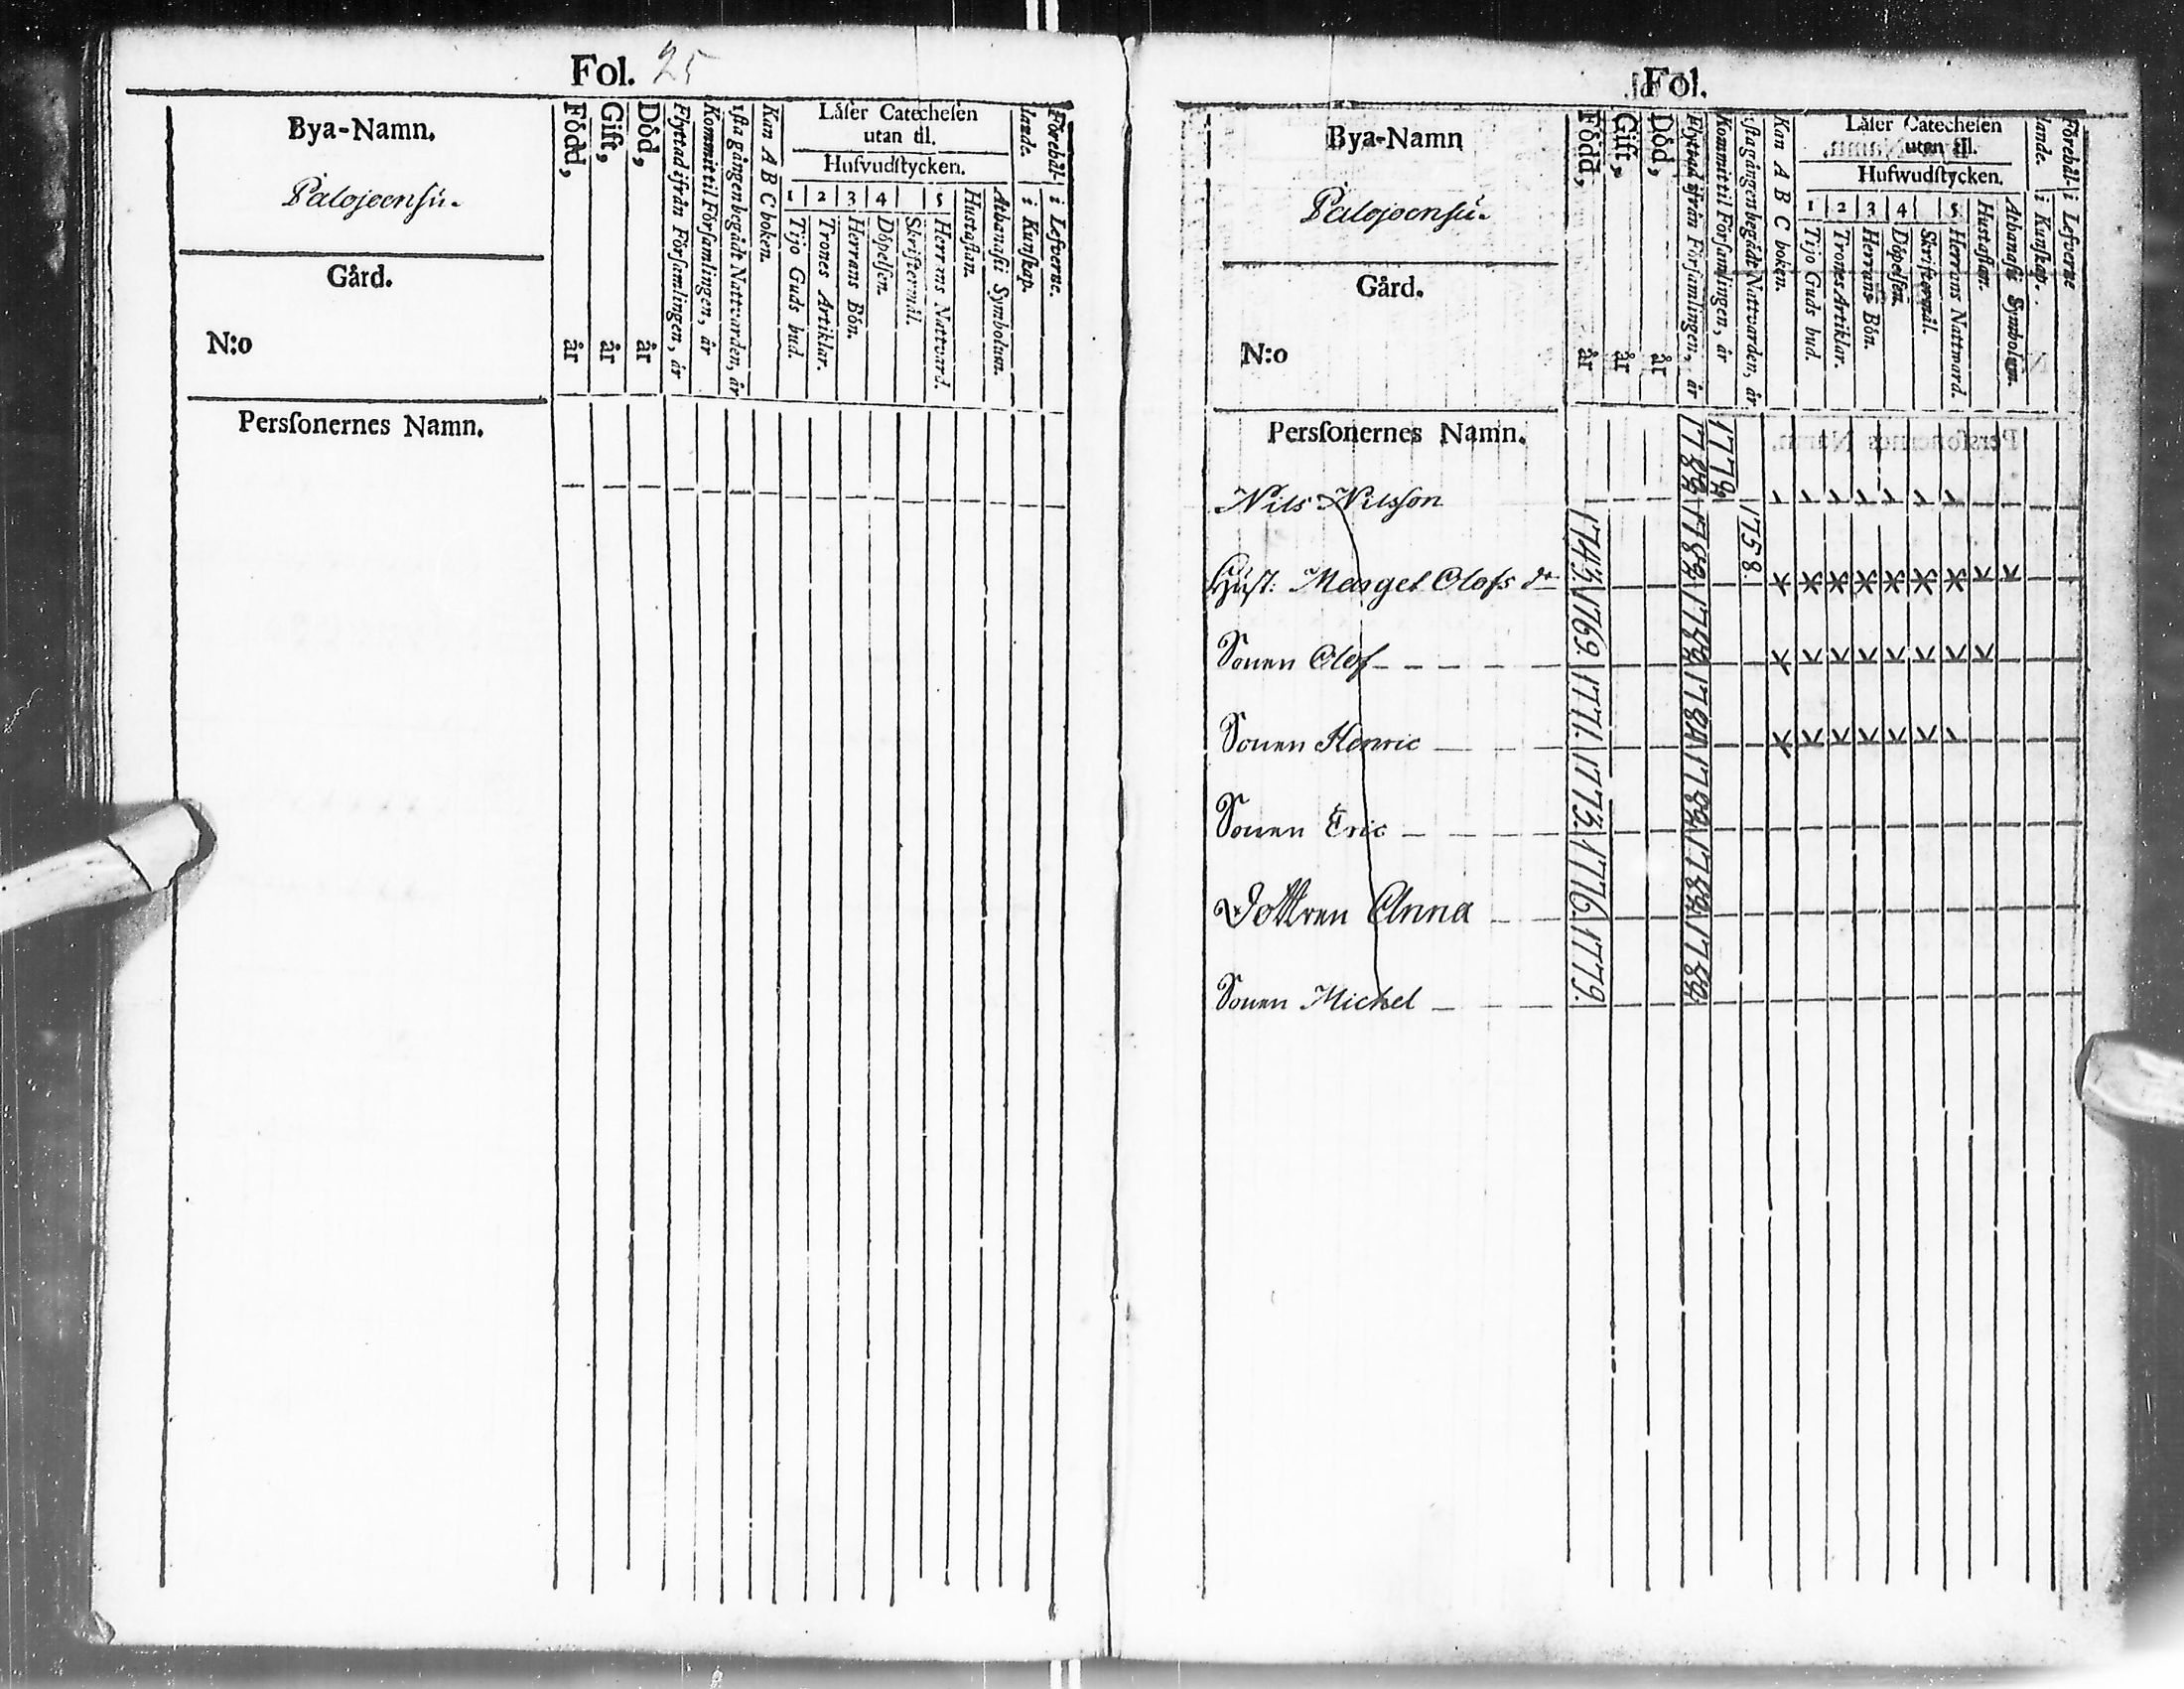 Fol. 25
Bya-Namn.
Palojoensú.
Gård.
N:o
Persſonernes Namn.
Född, år
Gift, år
Död, år
Flyttad ifrån Förſamlingen, år
Kommit til Förſamlingen, år
1ſta gången begådt Nattvarden, år
Kan A B C boken.
Låſer Catecheſen
utan til.
Hufvudſtycken.
1 2 3 4 5
Tijo Guds bud.
Trones Artiklar.
Herrans Bön.
Döpelſen.
Skriftermål.
Herrans Nattvard.
Hustaflan.
Athanaſii Symbolum.
Förehål-
lande.
i Kunſkap.
i Lefverne.
Fol.
Bya-Namn
Palojoensú.
Gård.
N:o
Persſonernes Namn.
Född, år
Gift, år
Död, år
Flyttad ifrån Förſamlingen, år
Kommit til Förſamlingen, år
1ſta gången begådt Nattvarden, år
Kan A B C boken.
Låſer Catecheſen
utan til.
Hufwudſtycken.
1 2 3 4 5
Tijo Guds bud.
Trones Artiklar.
Herrans Bön.
Döpelſen.
Skriftermål.
Herrans Nattward.
Hustaflan.
Athanaſii Symbolum.
Förehål-
lande.
i Kunſkap.
i Lefverne
Nils Nilsſon 1779
Hust: Marget Olofs dr 1743. 1758.
Sonen Olof 1769.
Sonen Henric 1771.
Sonen Eric 1773.
Dottren Anna 1776.
Sonen Michel 1779.